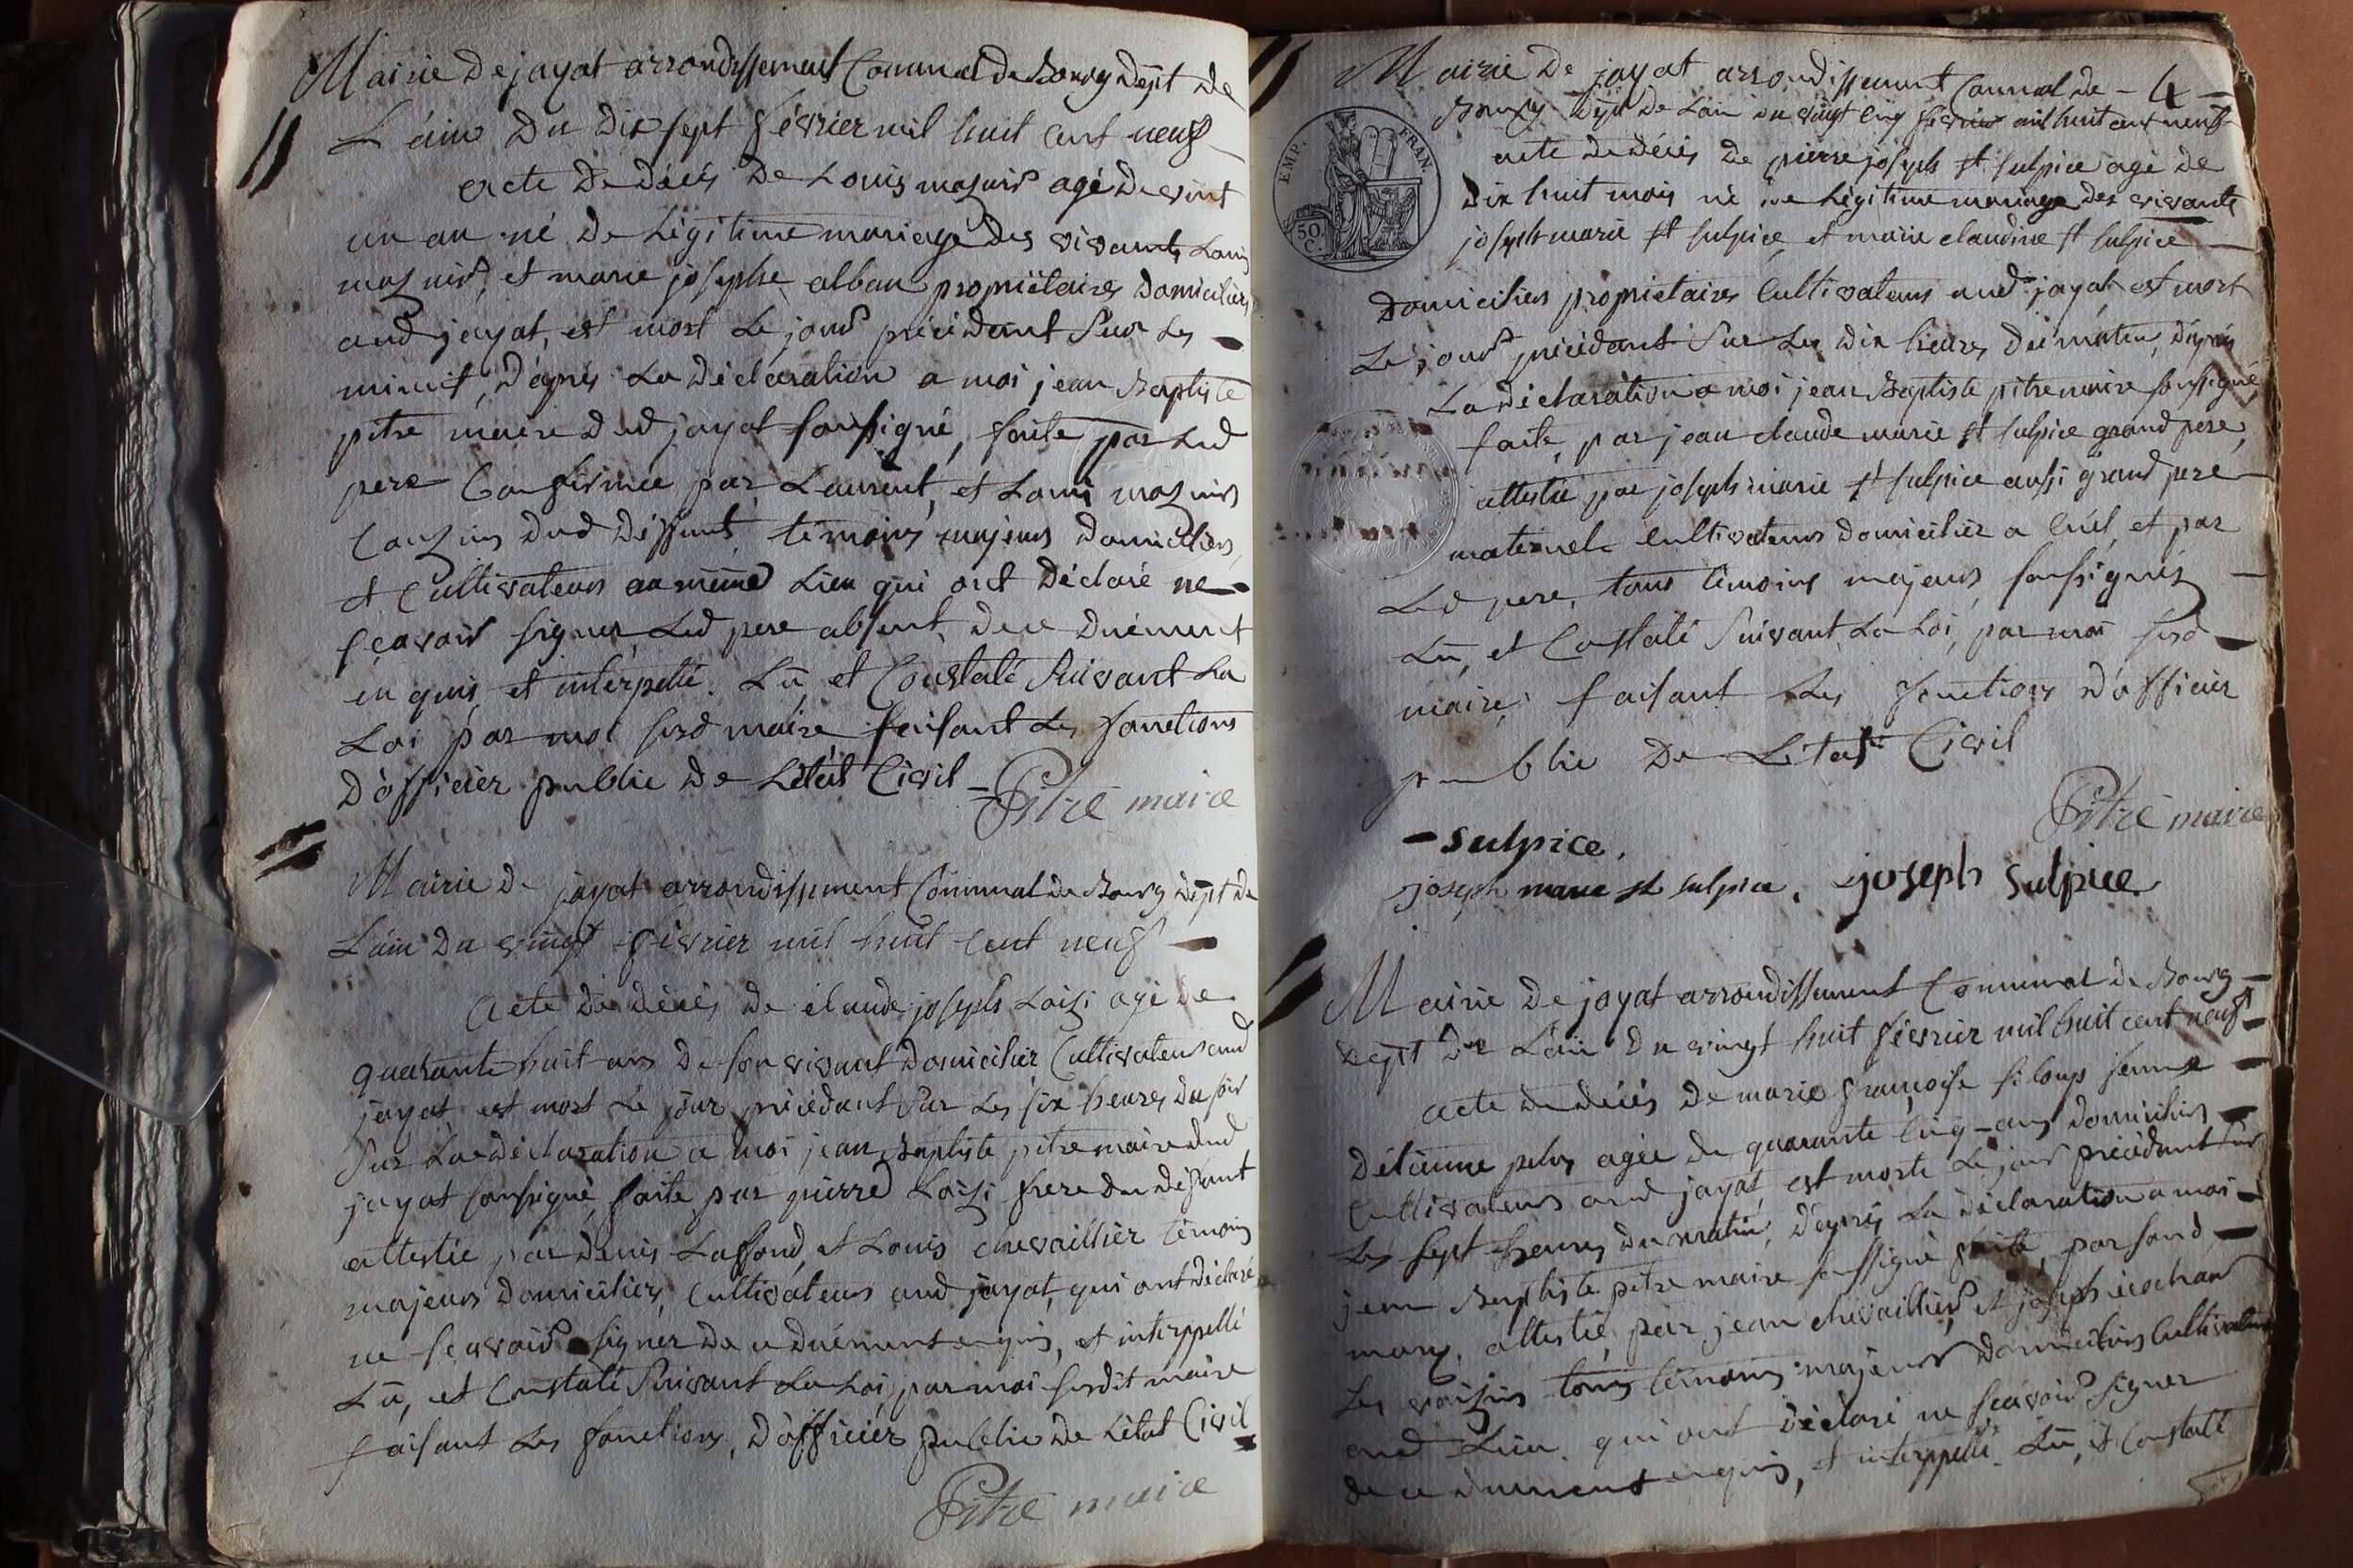 Mairie De jayat arrondissement Communal de Bourg Dept de
L'ain Du Dix sept février mil huit cent neuf
acte De décés De Louis mazuir agé de vint
un an né De Légitime mariage des vivants Louis
mazuir, et marie josephe alban propriëtaires Domiciliers
aud jayat, est mort Le jour précédant Sur Les
minuit, d'aprés La Déclaration a moi jean Baptiste
pitre maire dud jayat soussigné, faite par Led
pere Confirmée par Laurent, et Louis mazuir
Cousins dud Déffunt, témoins majeurs Domiciliers,
et Cultivateurs au même Lieu qui ont Déclaré ne
sçavoir signer, Led pere absent, de ce Duëment
enquis, et intérpellé. Lû, et Constaté Suivant La
Loi par moi susd maire faisant Les fonctions
D'officier public De L'état Civil
Pitre maire
Mairie De jayat arrondissement Communal de Bourg Dept De
L'ain Du vingt février mil huit cent neuf
Acte De décés De claude joseph Loisi agé De
quarante huit ans De son vivant Domicilier Cultivateur aud
jayat, est mort Le jour précédant Sur Les six heures du soir
Sur La déclaration a moi jean Baptiste pitre maire dud
jayat soussigné, faite par pierre Loisi frere du défunt
attestée par denis Laffond, et Louis chevaillier témoins
majeurs Domiciliers, Cultivateurs aud jayat, qui ont déclaré
ne sçavoir signer de ce duëment enquis, et interppellé
Lû, et Constaté Suivant La Loi, par moi susdit maire
faisant Les fonctions, D'officier public De L'état Civil
Pitre maire
Mairie De jayat arrondissement Communal De - 4 -
Bourg Dept De L'ain Du vingt cinq février mil huit cent neuf
EMP. FRAN.
50. C.
acte De décés De pierre joseph st sulpice agé de
Dix huit mois né de Légitime mariage Des vivants
joseph marie st sulpice, et marie claudine st sulpice
Domiciliers propriétaires Cultivateurs aud jayat est mort
Le jour précédant Sur Les Dix heures du matin, d'aprés
La Déclaration a moi jean Baptiste pitre maire soussigné,
faite, par jean claude marie st sulpice grand pere,
attestée par joseph marie st sulpice aussi grand pere
maternel Cultivateurs Domicilier a et par
Led pere, tous témoins majeurs, soussignés
Lû, et Constaté Suivant La Loi, par moi susd
maire, faisant Les fonctions d'officier
public De L'état Civil
Pitre maire
sulpice.
joseph marie st sulpice. joseph sulpice
Mairie De jayat arrondissement Communal de Bourg
Dept De L'ain Du vingt huit février mil huit cent neuf
acte De décés De marie françoise femme
D'étienne agée de quarante cinq ans domiciliers
Cultivateurs aud jayat, est morte Le jour précédant sur
Les sept heures du matin, d'aprés La déclaration a moi
jean Baptiste pitre maire soussigné faite, par sond
mary, attestée, par jean chevaillier, et joseph
Les voisins tous témoins majeurs Domiciliers Cultivateurs
aud Lieu qui ont déclaré ne sçavoir signer
de ce duement enquis, et interppellé. Lû, et Constaté